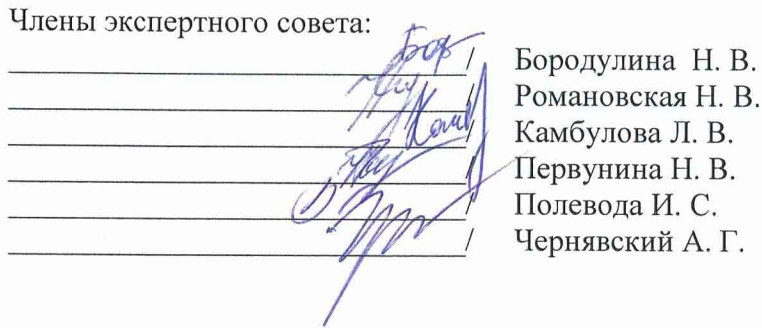 Члены экспертного совета:
/ Бородулина Н. В.
/ Романовская Н. В.
/ Камбулова Л. В.
/ Первунина Н. В.
/ Полевода И. С.
/ Чернявский А. Г.